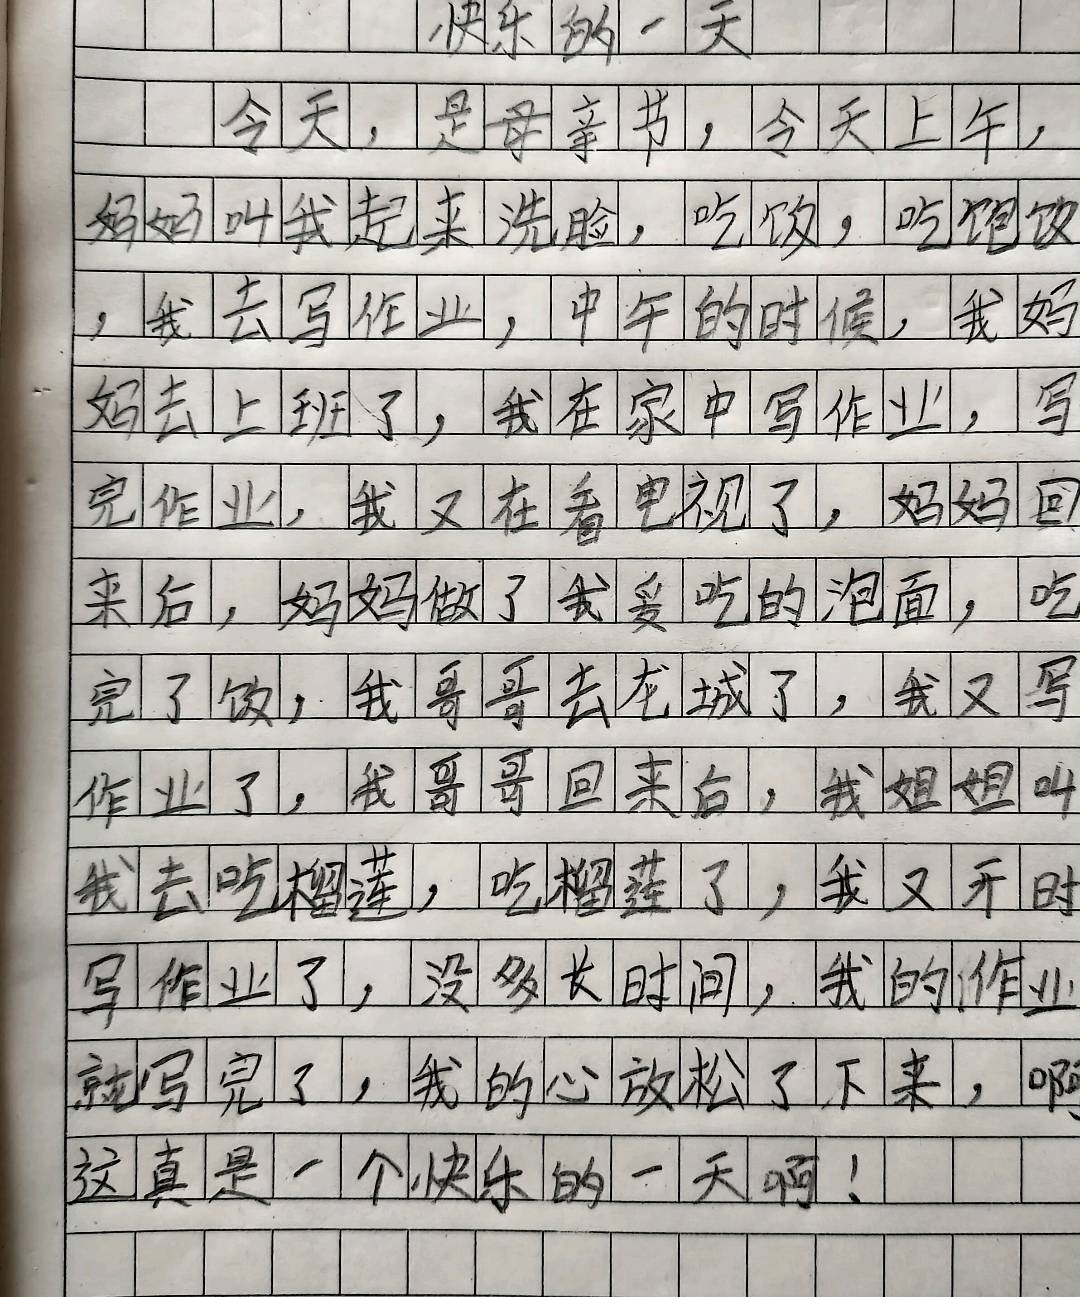 快乐的一天
今天，是母亲节，今天上午，
妈妈叫我起来洗脸，吃饭，吃饱饭
，我去写作业，中午的时候，我妈
妈去上班了，我在家中写作业，写
完作业，我又在看电视了，妈妈回
来后，妈妈做了我爱吃的泡面，吃
完了饭，我哥哥去龙城了，我又写
作业了，我哥哥回来后，我姐姐叫
我去吃榴莲，吃榴莲了，我又开时
写作业了，没多长时间，我的作业
就写完了，我的心放松了下来，啊
这真是一个快乐的一天啊！